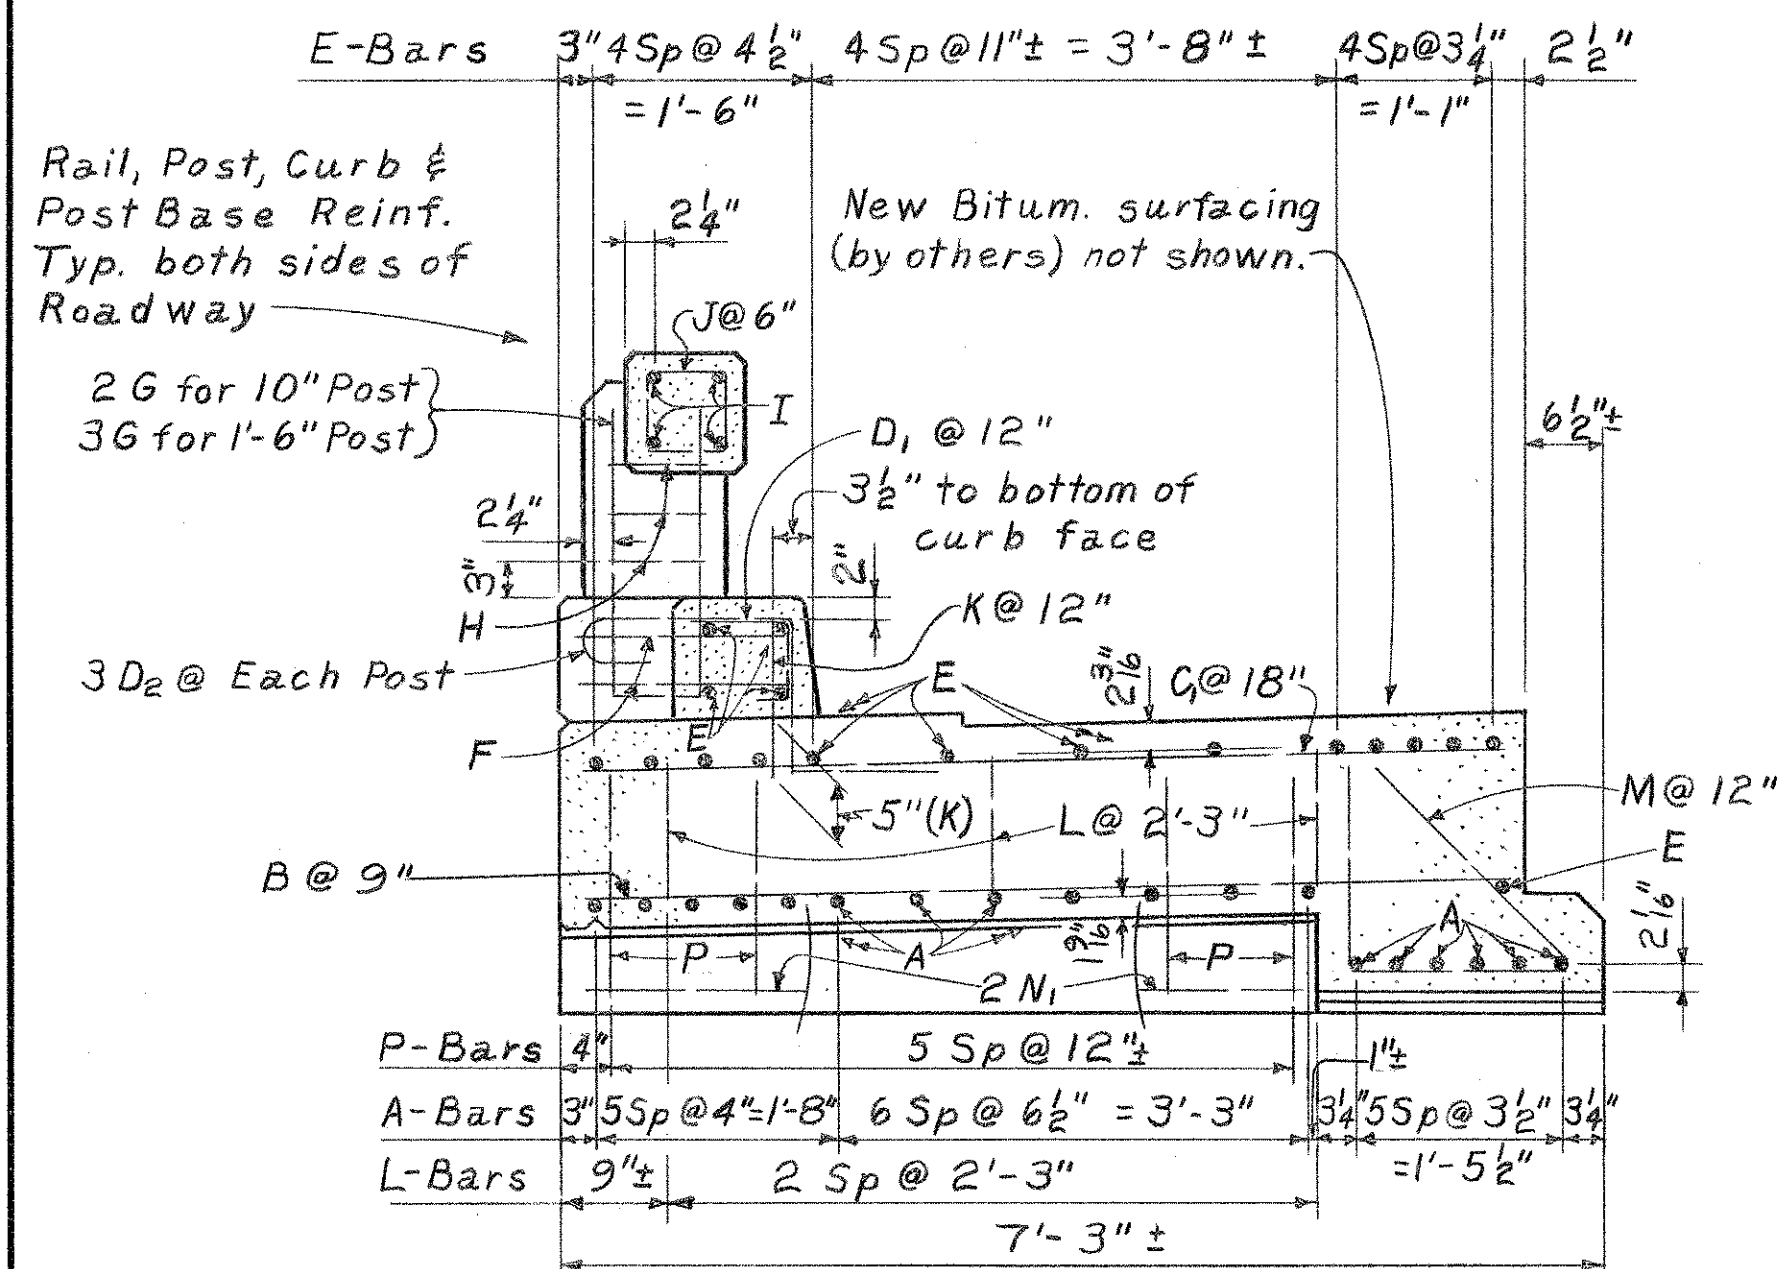 E-Bars 3" 4 Sp @ 4 1/2" 4 Sp @ 11" ± = 3'-8" ± 4 Sp @ 3 1/4" 2 1/2"
= 1'-6" = 1'-1"
Rail, Post, Curb &
Post Base Reinf.
Typ. both sides of
Roadway
2 1/4"
New Bitum. surfacing
(by others) not shown.
J @ 6"
2 G for 10" Post
3 G for 1'-6" Post
I
D1 @ 12"
6 1/2" ±
3 1/2" to bottom of
curb face
2 1/4"
3"
2"
H
K @ 12"
3 D2 @ Each Post
E
2 3/16"
C1 @ 18"
F
E
5" (K)
L @ 2'-3"
M @ 12"
B @ 9"
E
A
2 1/16"
P
A
1 9/16"
P
2 N1
P-Bars 4" 5 Sp @ 12" ± 1" ±
A-Bars 3" 5 Sp @ 4" = 1'-8" 6 Sp @ 6 1/2" = 3'-3" 3 1/4" 5 Sp @ 3 1/2" 3 1/4"
= 1'-5 1/2"
L-Bars 9" ± 2 Sp @ 2'-3"
7'-3" ±